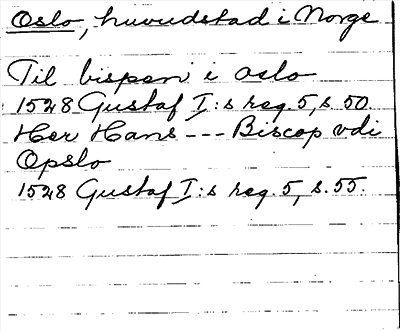 Oslo, huvudstad i Norge
Til bispen i oslo
1528 Gustaf I:s reg. 5, s. 50.
Her Hans --- Biscop vdi
Opslo
1528 Gustaf I:s reg. 5, s. 55.